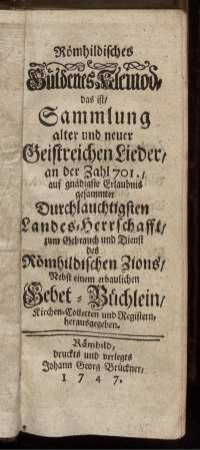 Römhildisches
Güldenes Kleinod,
das ist/
Sammlung
alter und neuer
Geistreichen Lieder/
an der Zahl 701./
auf gnädigste Erlaubnis
gesammter
Durchlauchtigsten
Landes-Herrschafft/
zum Gebrauch und Dienst
des
Römhildischen Zions/
Nebst einem erbaulichen
Gebet-Büchlein/
Kirchen-Collecten und Registern/
herausgegeben.
Römhild,
druckts und verlegts
Johann Georg Brückner,
1747.